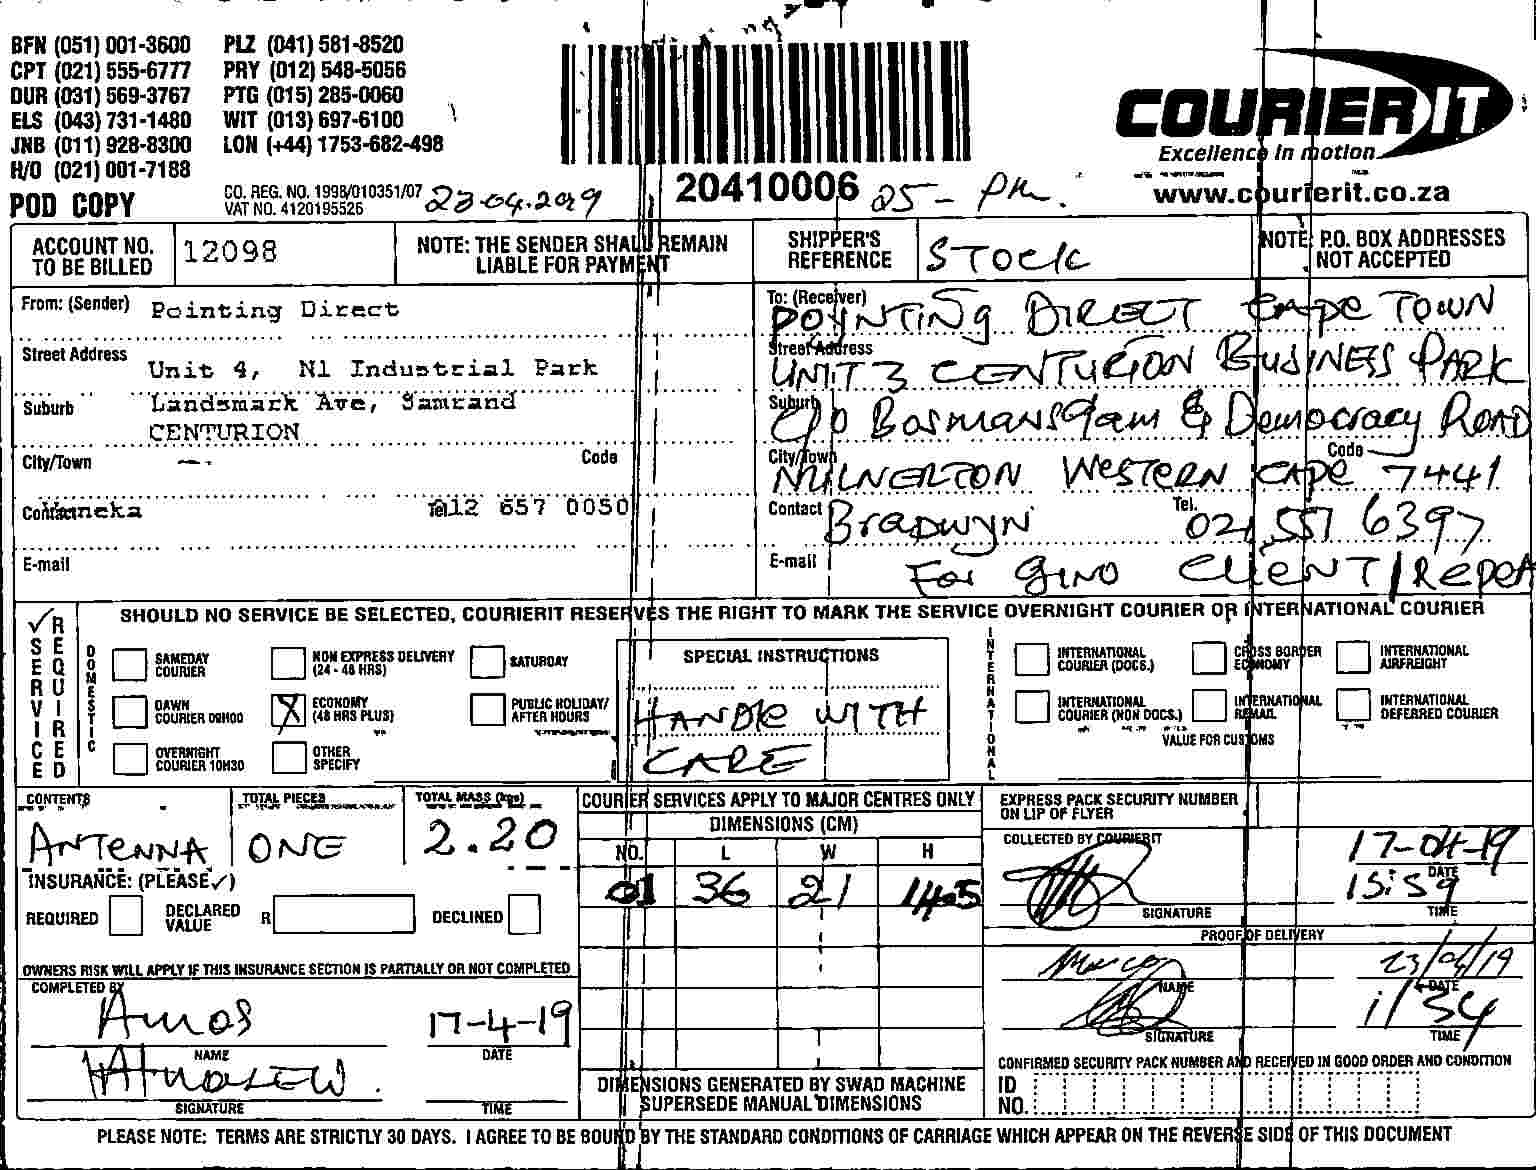 BFN (051) 001-3600 PLZ (041) 581-8520
CPT (021) 555-6777 PRY (012) 548-5056
DUR (031) 569-3767 PTG (015) 285-0060
ELS (043) 731-1480 WIT (013) 697-6100
JNB (011) 928-8300 LON (+44) 1753-682-498
H/O (021) 001-7188
POD COPY
CO. REG. NO. 1998/010351/07
VAT NO. 4120195526
23.04.2019
20410006
25 - PM.
COURIERIT
Excellence in motion
www.courierit.co.za
ACCOUNT NO. TO BE BILLED 12098
NOTE: THE SENDER SHALL REMAIN LIABLE FOR PAYMENT
SHIPPER'S REFERENCE STOCK
NOTE: P.O. BOX ADDRESSES NOT ACCEPTED
From: (Sender) Pointing Direct
Street Address Unit 4, N1 Industrial Park
Suburb Landsmark Ave, Samrand
CENTURION
City/Town Code
Contact Tel 012 657 0050
E-mail
To: (Receiver) POYNTING DIRECT CAPE TOWN
Street Address UNIT 3 CENTURION BUSINESS PARK
Suburb C/O Bosmansdam & Democracy ROAD
City/Town MILNERTON WESTERN CAPE Code 7441
Contact Bradwyn Tel. 021 557 6397
E-mail For GINO CLIENT/Repea
SHOULD NO SERVICE BE SELECTED, COURIERIT RESERVES THE RIGHT TO MARK THE SERVICE OVERNIGHT COURIER OR INTERNATIONAL COURIER
✓ SERVICE REQUIRED
DOMESTIC
SAMEDAY COURIER
NON EXPRESS DELIVERY (24 - 48 HRS)
SATURDAY
DAWN COURIER 09H00
X ECONOMY (48 HRS PLUS)
PUBLIC HOLIDAY/ AFTER HOURS
OVERNIGHT COURIER 10H30
OTHER SPECIFY
SPECIAL INSTRUCTIONS
HANDLE WITH
CARE
INTERNATIONAL
INTERNATIONAL COURIER (DOCS.)
CROSS BORDER ECONOMY
INTERNATIONAL AIRFREIGHT
INTERNATIONAL COURIER (NON DOCS.)
INTERNATIONAL REMAIL
INTERNATIONAL DEFERRED COURIER
VALUE FOR CUSTOMS
CONTENTS ANTENNA
TOTAL PIECES ONE
TOTAL MASS (kgs) 2.20
INSURANCE: (PLEASE✓)
REQUIRED DECLARED VALUE R DECLINED
OWNERS RISK WILL APPLY IF THIS INSURANCE SECTION IS PARTIALLY OR NOT COMPLETED
COMPLETED BY
Amos 17-4-19
NAME DATE
SIGNATURE TIME
COURIER SERVICES APPLY TO MAJOR CENTRES ONLY
DIMENSIONS (CM)
NO. L W H
01 36 21 14.5
DIMENSIONS GENERATED BY SWAD MACHINE SUPERSEDE MANUAL DIMENSIONS
EXPRESS PACK SECURITY NUMBER ON LIP OF FLYER
COLLECTED BY COURIERIT
17-04-19
DATE
15:59
SIGNATURE TIME
PROOF OF DELIVERY
23/04/19
NAME DATE
SIGNATURE TIME
CONFIRMED SECURITY PACK NUMBER AND RECEIVED IN GOOD ORDER AND CONDITION
ID NO.
PLEASE NOTE: TERMS ARE STRICTLY 30 DAYS. I AGREE TO BE BOUND BY THE STANDARD CONDITIONS OF CARRIAGE WHICH APPEAR ON THE REVERSE SIDE OF THIS DOCUMENT